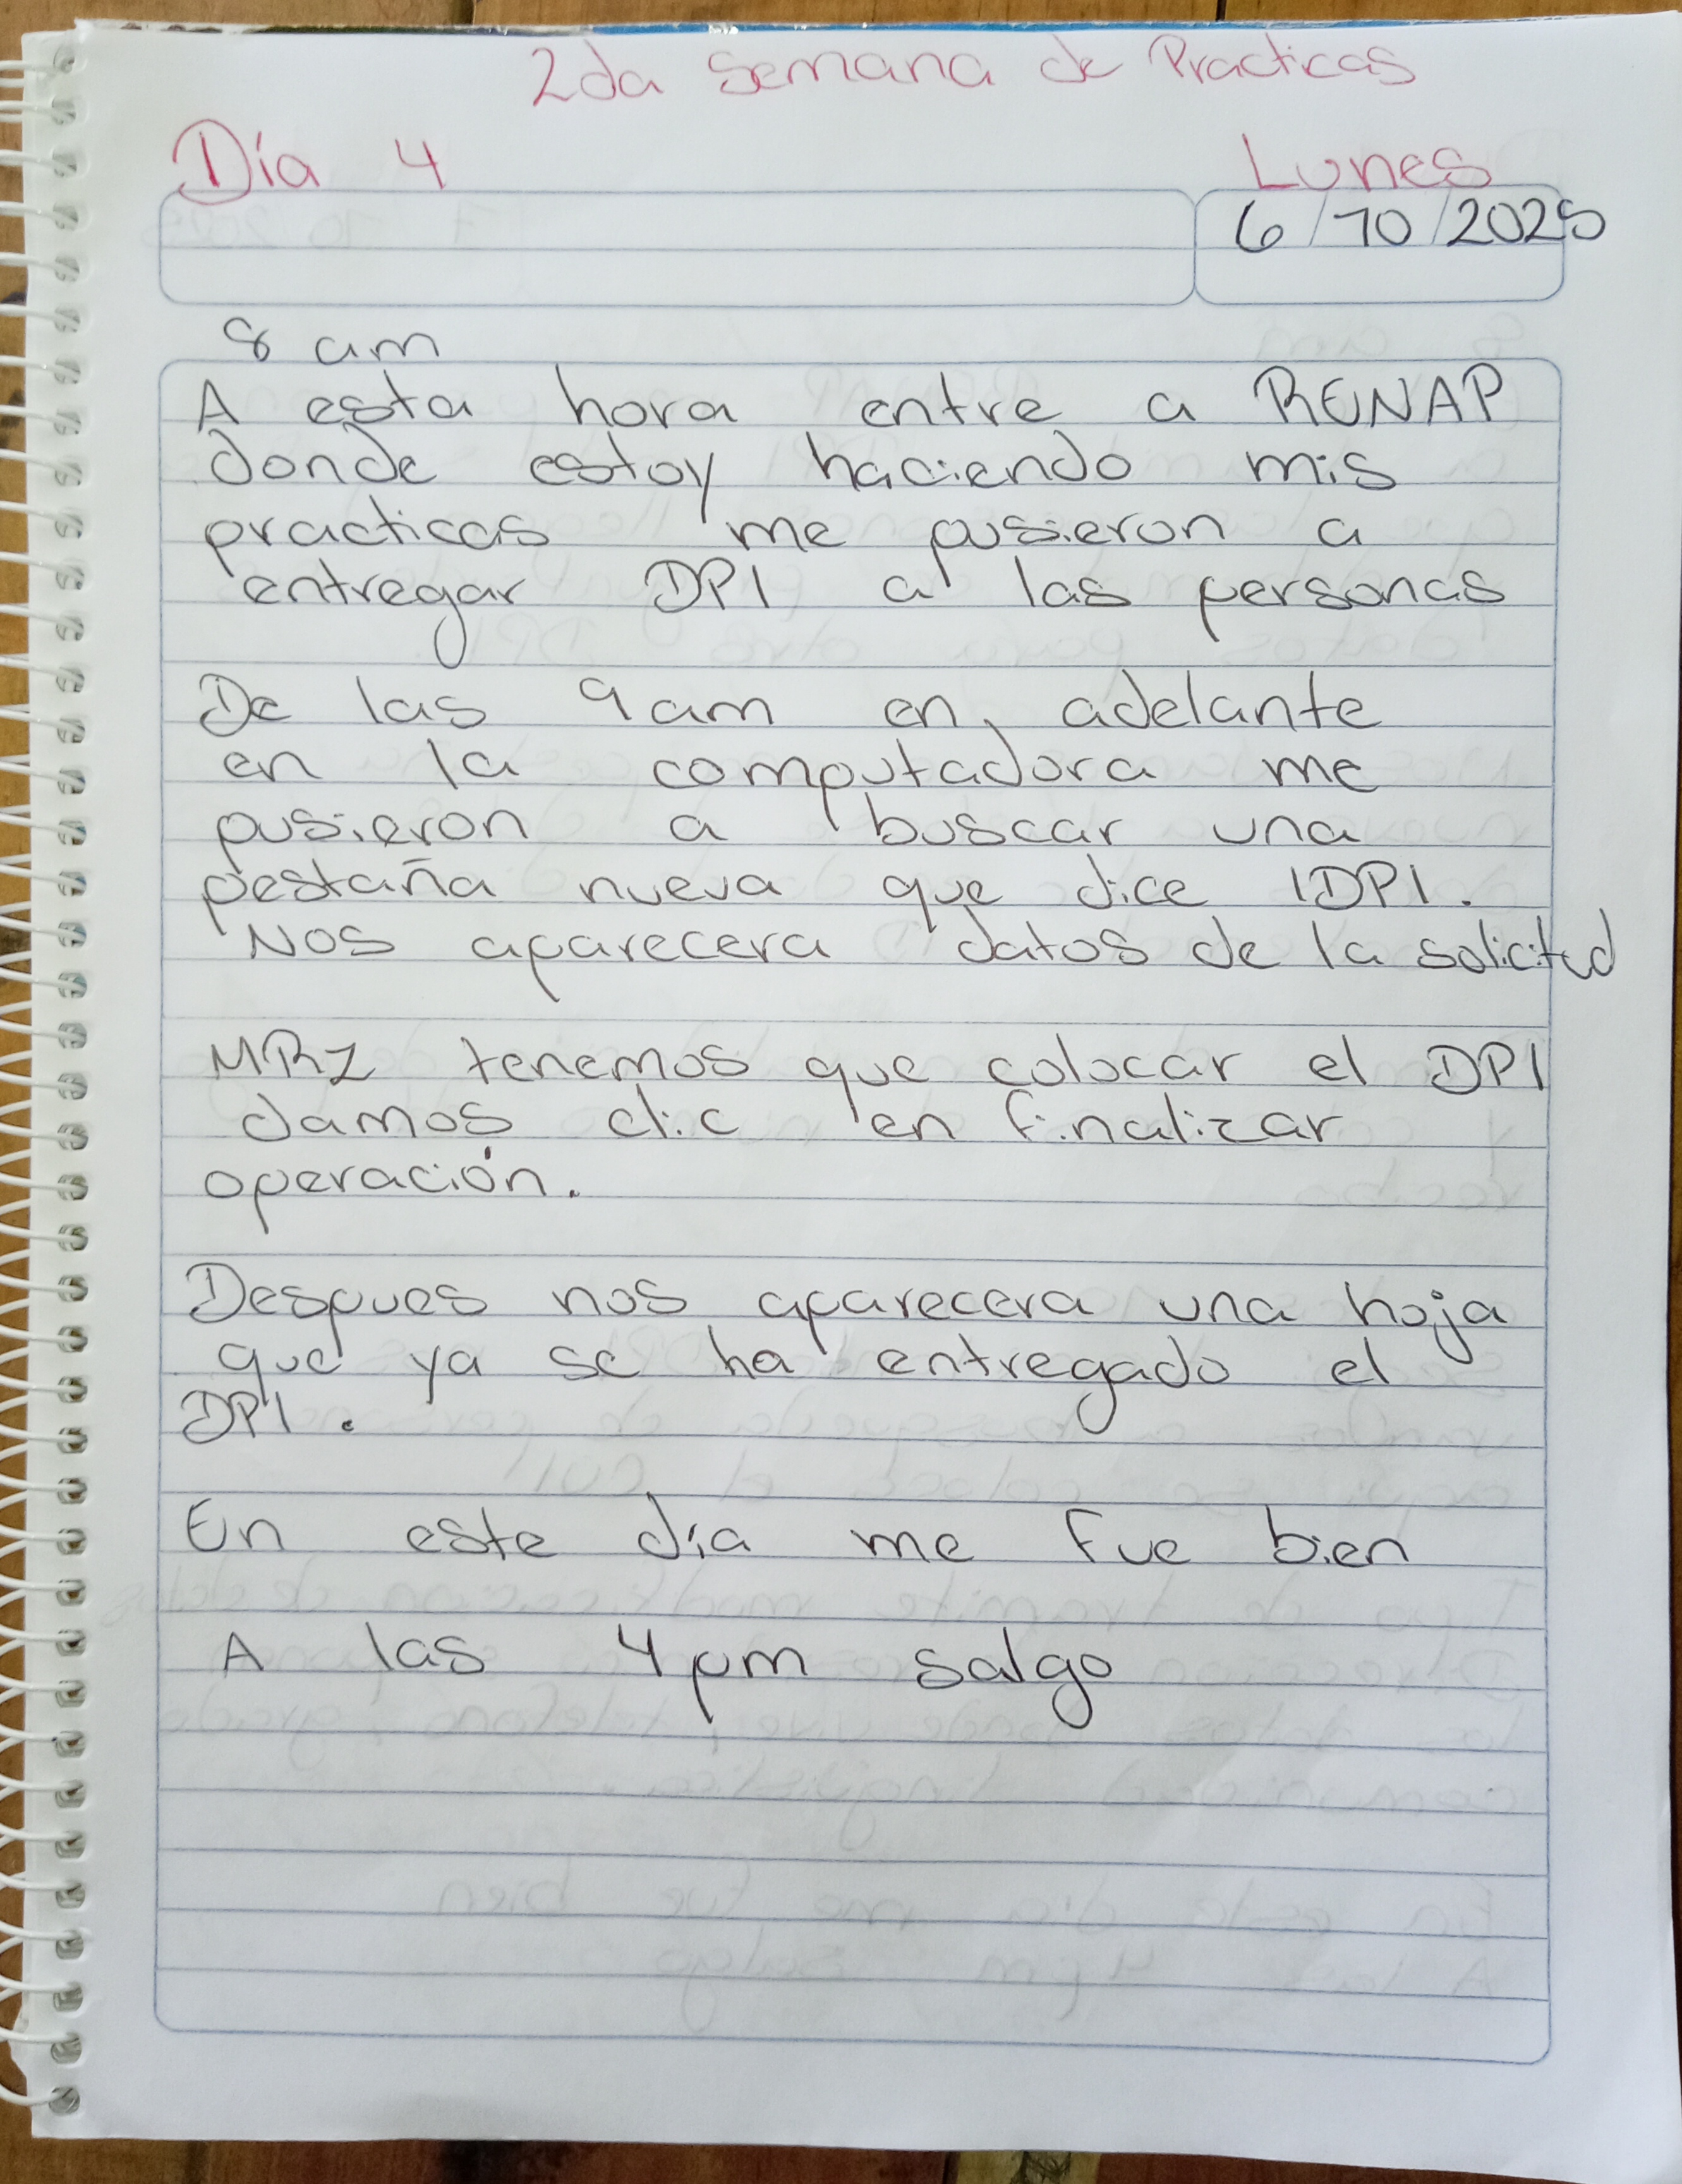 2da Semana de Practicas
Día 4
Lunes
6/10/2025
8 am
A esta hora entre a RENAP
donde estoy haciendo mis
practicas me pusieron a
entregar DPI a las personas
De las 9am en adelante
en la computadora me
pusieron a buscar una
pestaña nueva que dice IDPI.
Nos aparecera datos de la solicitud
MRZ tenemos que colocar el DPI
damos clic en finalizar
operación.
Despues nos aparecera una hoja
que ya se ha entregado el
DPI.
En este día me fue bien
A las 4pm salgo